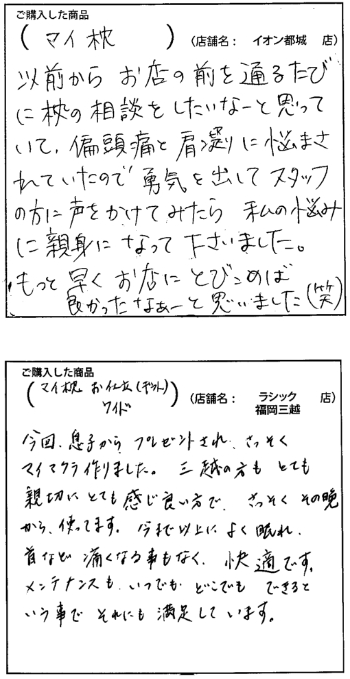 ご購入した商品
(マイ枕) (店舗名: イオン都城 店)
以前から お店の前を通るたび
に枕の相談をしたいなーと思って
いて、偏頭痛と肩凝りに悩まさ
れていたので 勇気を出してスタッフ
の方に声をかけてみたら 私の悩み
に親身になって下さいました。
もっと早くお店にとびこめば
良かったなぁーと思いました(笑)
ご購入した商品
(マイ枕 お仕立(キット)
ワイド) (店舗名: ラシック
福岡三越 店)
今回、息子から プレゼントされ、さっそく
マイマクラ作りました。 三越の方も とても
親切に とても 感じ良い方で、 さっそく その晩
から、使ってます。 今まで以上に よく眠れ、
首など 痛くなる事もなく、 快適です。
メンテナンスも、いつでも どこでも できると
いう事で それにも 満足しています。